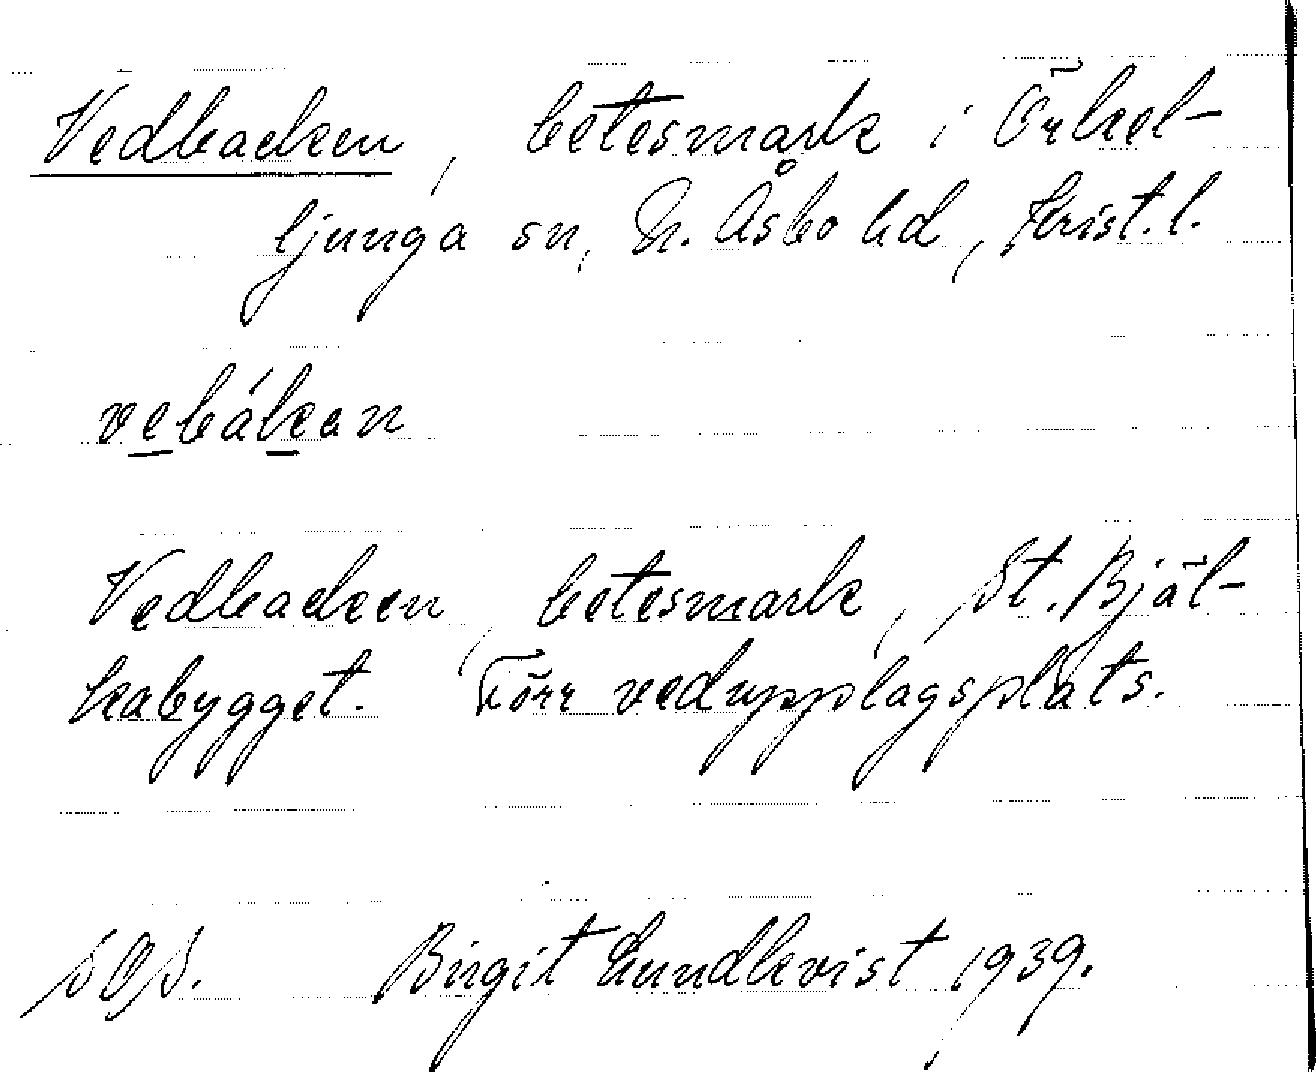 Vedbacken, betesmark i Örkel-
ljunga sn, N. Åsbo hd, Krist. l.
vebákan
Vedbacken, betesmark, St. Bjäl-
kabygget. Förr vedupplagsplats.
SOS. Birgit Lundkvist 1939.